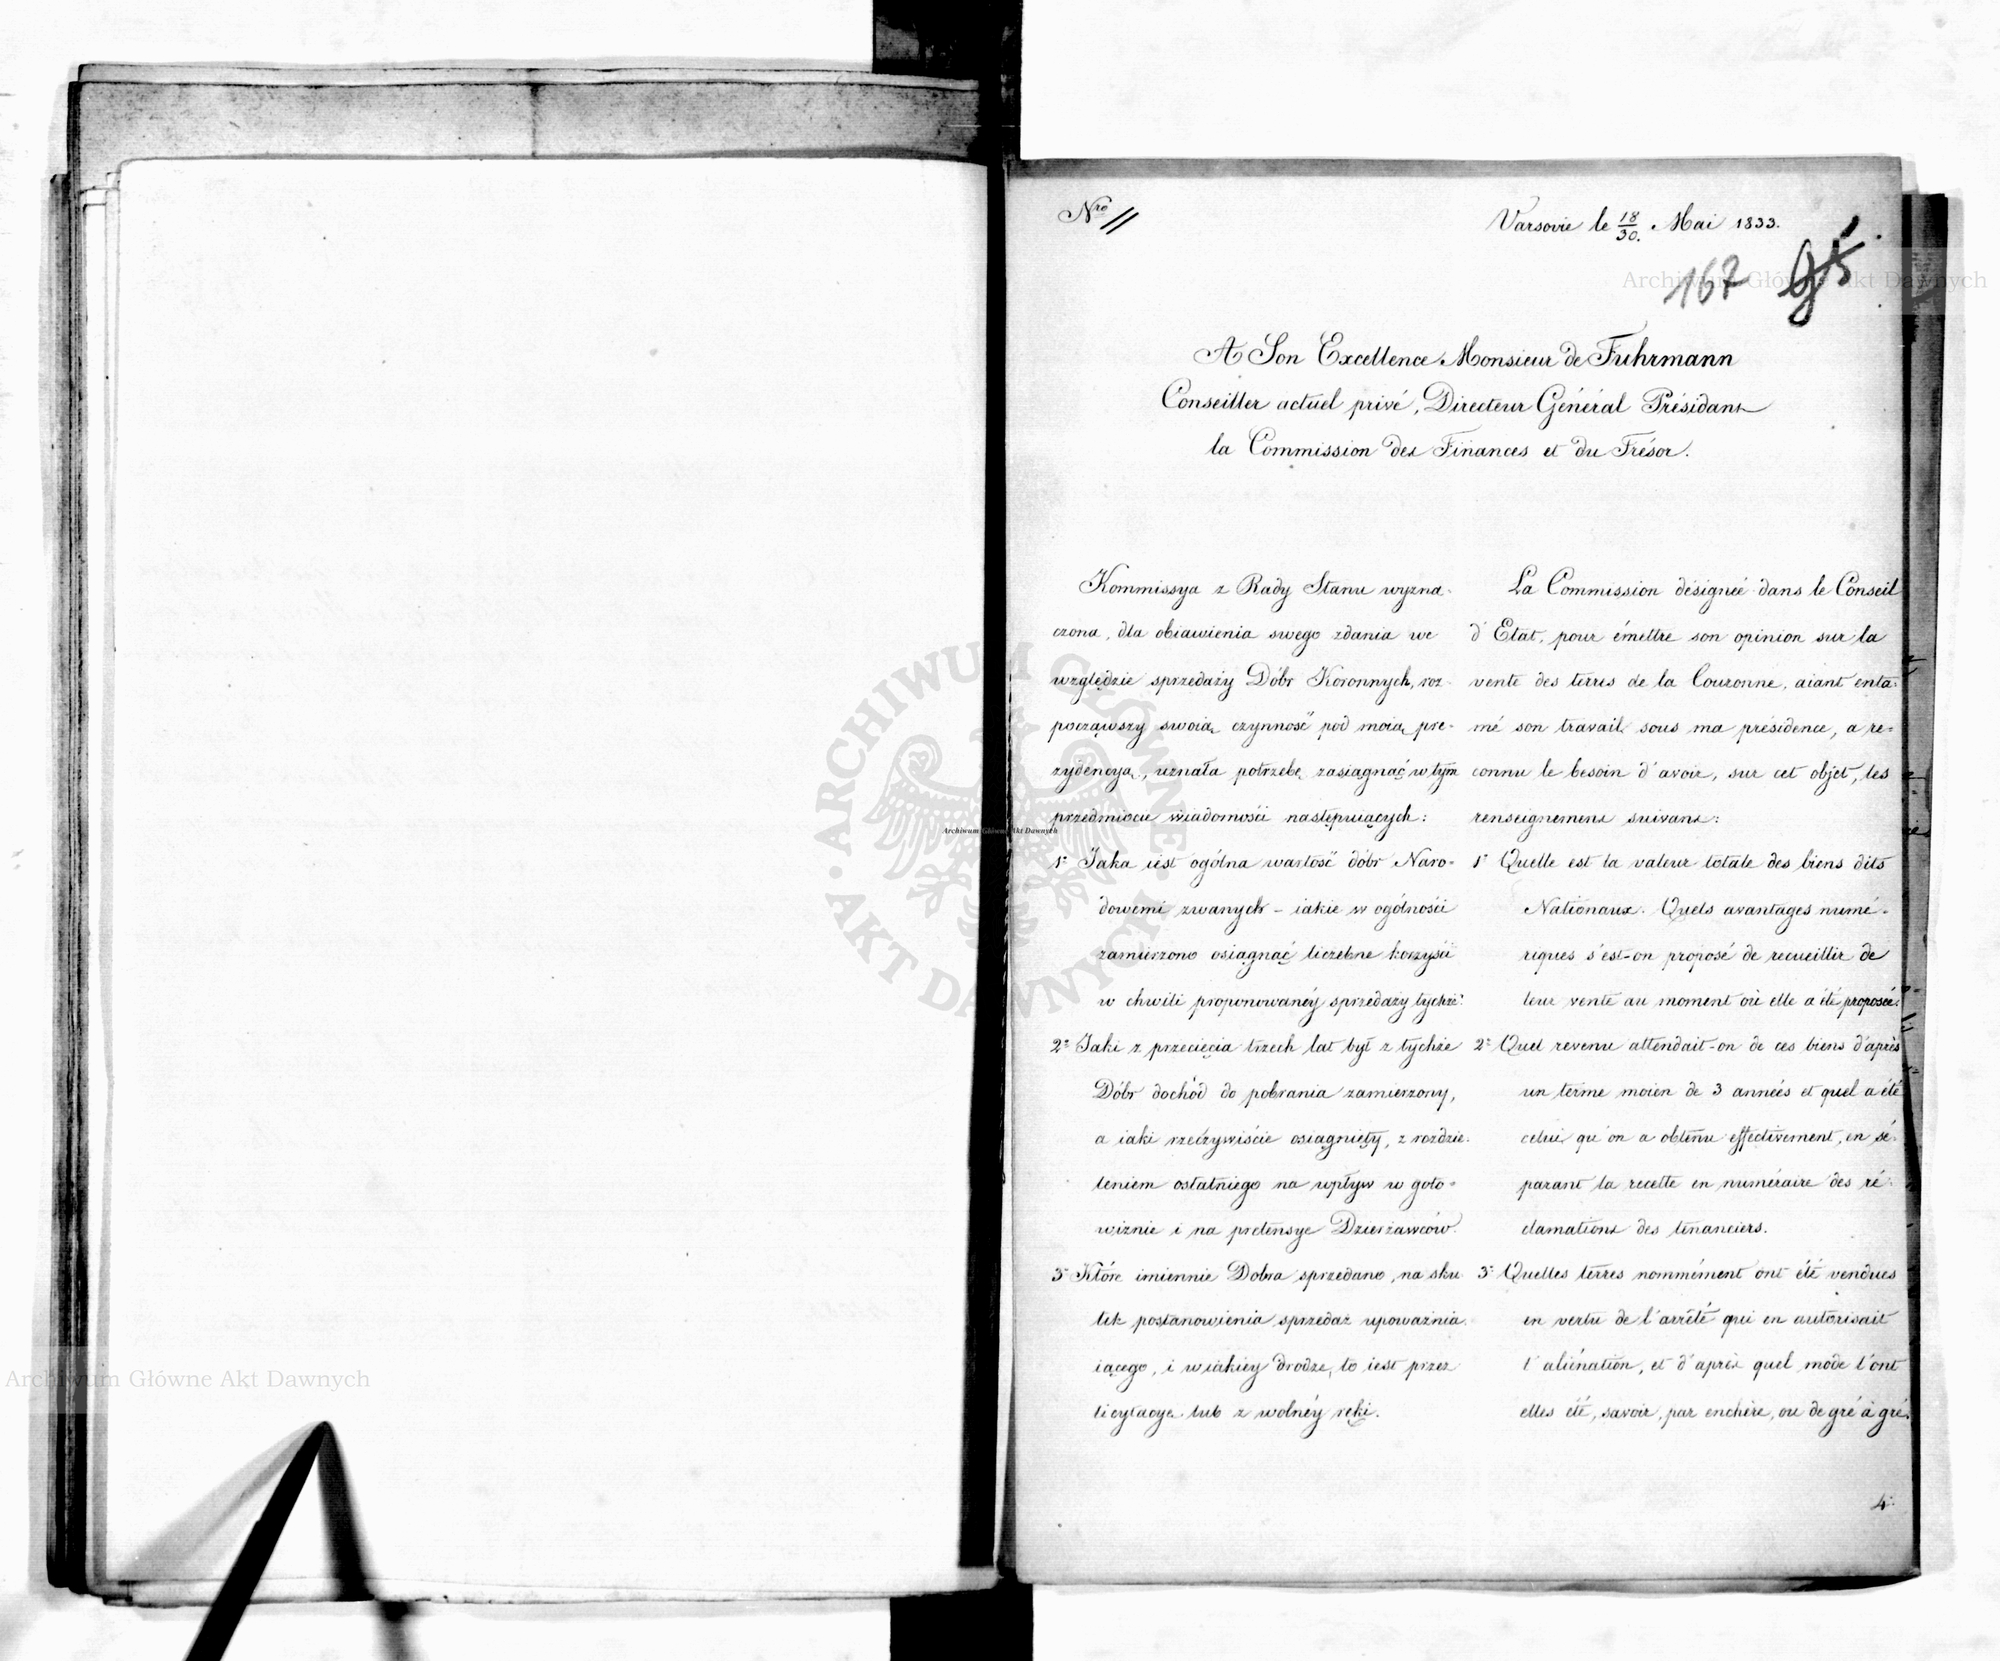 Nro 11
Varsovie le 18/30. Mai 1833.
167 95
A Son Excellence Monsieur de Fuhrmann
Conseiller actuel privé, Directeur Général Présidant
la Commission des Finances et du Trésor.
Kommissya z Rady Stanu wyzna-
czona, dla obiawienia swego zdania we
względzie sprzedaży Dóbr Koronnych, roz-
począwszy swoią czynność pod moią pre-
zydencyą, uznała potrzebę zasiągnąć w tym
przedmiocie wiadomości następuiących:
1° Jaka iest ogólna wartość dóbr Naro-
dowemi zwanych - iakie w ogólności
zamierzono osiągnąć liczebne korzyści
w chwili proponowanéy sprzedaży tychże?
2° Jaki z przecięcia trzech lat był z tychże
Dóbr dochód do pobrania zamierzony,
a iaki rzeczywiście osiągnięty, z rozdzie-
leniem ostatniego na wpływ w goto-
wiznie i na pretensye Dzierżawców.
3° Które imiennie Dobra sprzedano, na sku-
tek postanowienia sprzedaż upoważnia-
iącego, i w iakiey drodze, to iest przez
licytacyę lub z wolnéy ręki.
La Commission désignée dans le Conseil
d'Etat, pour émettre son opinion sur la
vente des terres de la Couronne, aiant enta-
mé son travail sous ma présidence, a re-
connu le besoin d'avoir, sur cet objet, les
renseignemens suivans:
1° Quelle est la valeur totale des biens dits
Nationaux. Quels avantages numé-
riques s'est-on proposé de recueillir de
leur vente au moment où elle a été proposée.
2° Quel revenu attendait-on de ces biens d'après
un terme moien de 3 années et quel a été
celui qu'on a obtenu effectivement, en sé-
parant la recette en numéraire des ré-
clamations des tenanciers.
3° Quelles terres nommément ont été vendues
en vertu de l'arrêté qui en autorisait
l'aliénation, et d'après quel mode l'ont
elles été, savoir, par enchère, ou de gré à gré.
4°
Archiwum Główne Akt Dawnych
Archiwum Główne Akt Dawnych
Archiwum Główne Akt Dawnych
ARCHIWUM GŁÓWNE AKT DAWNYCH